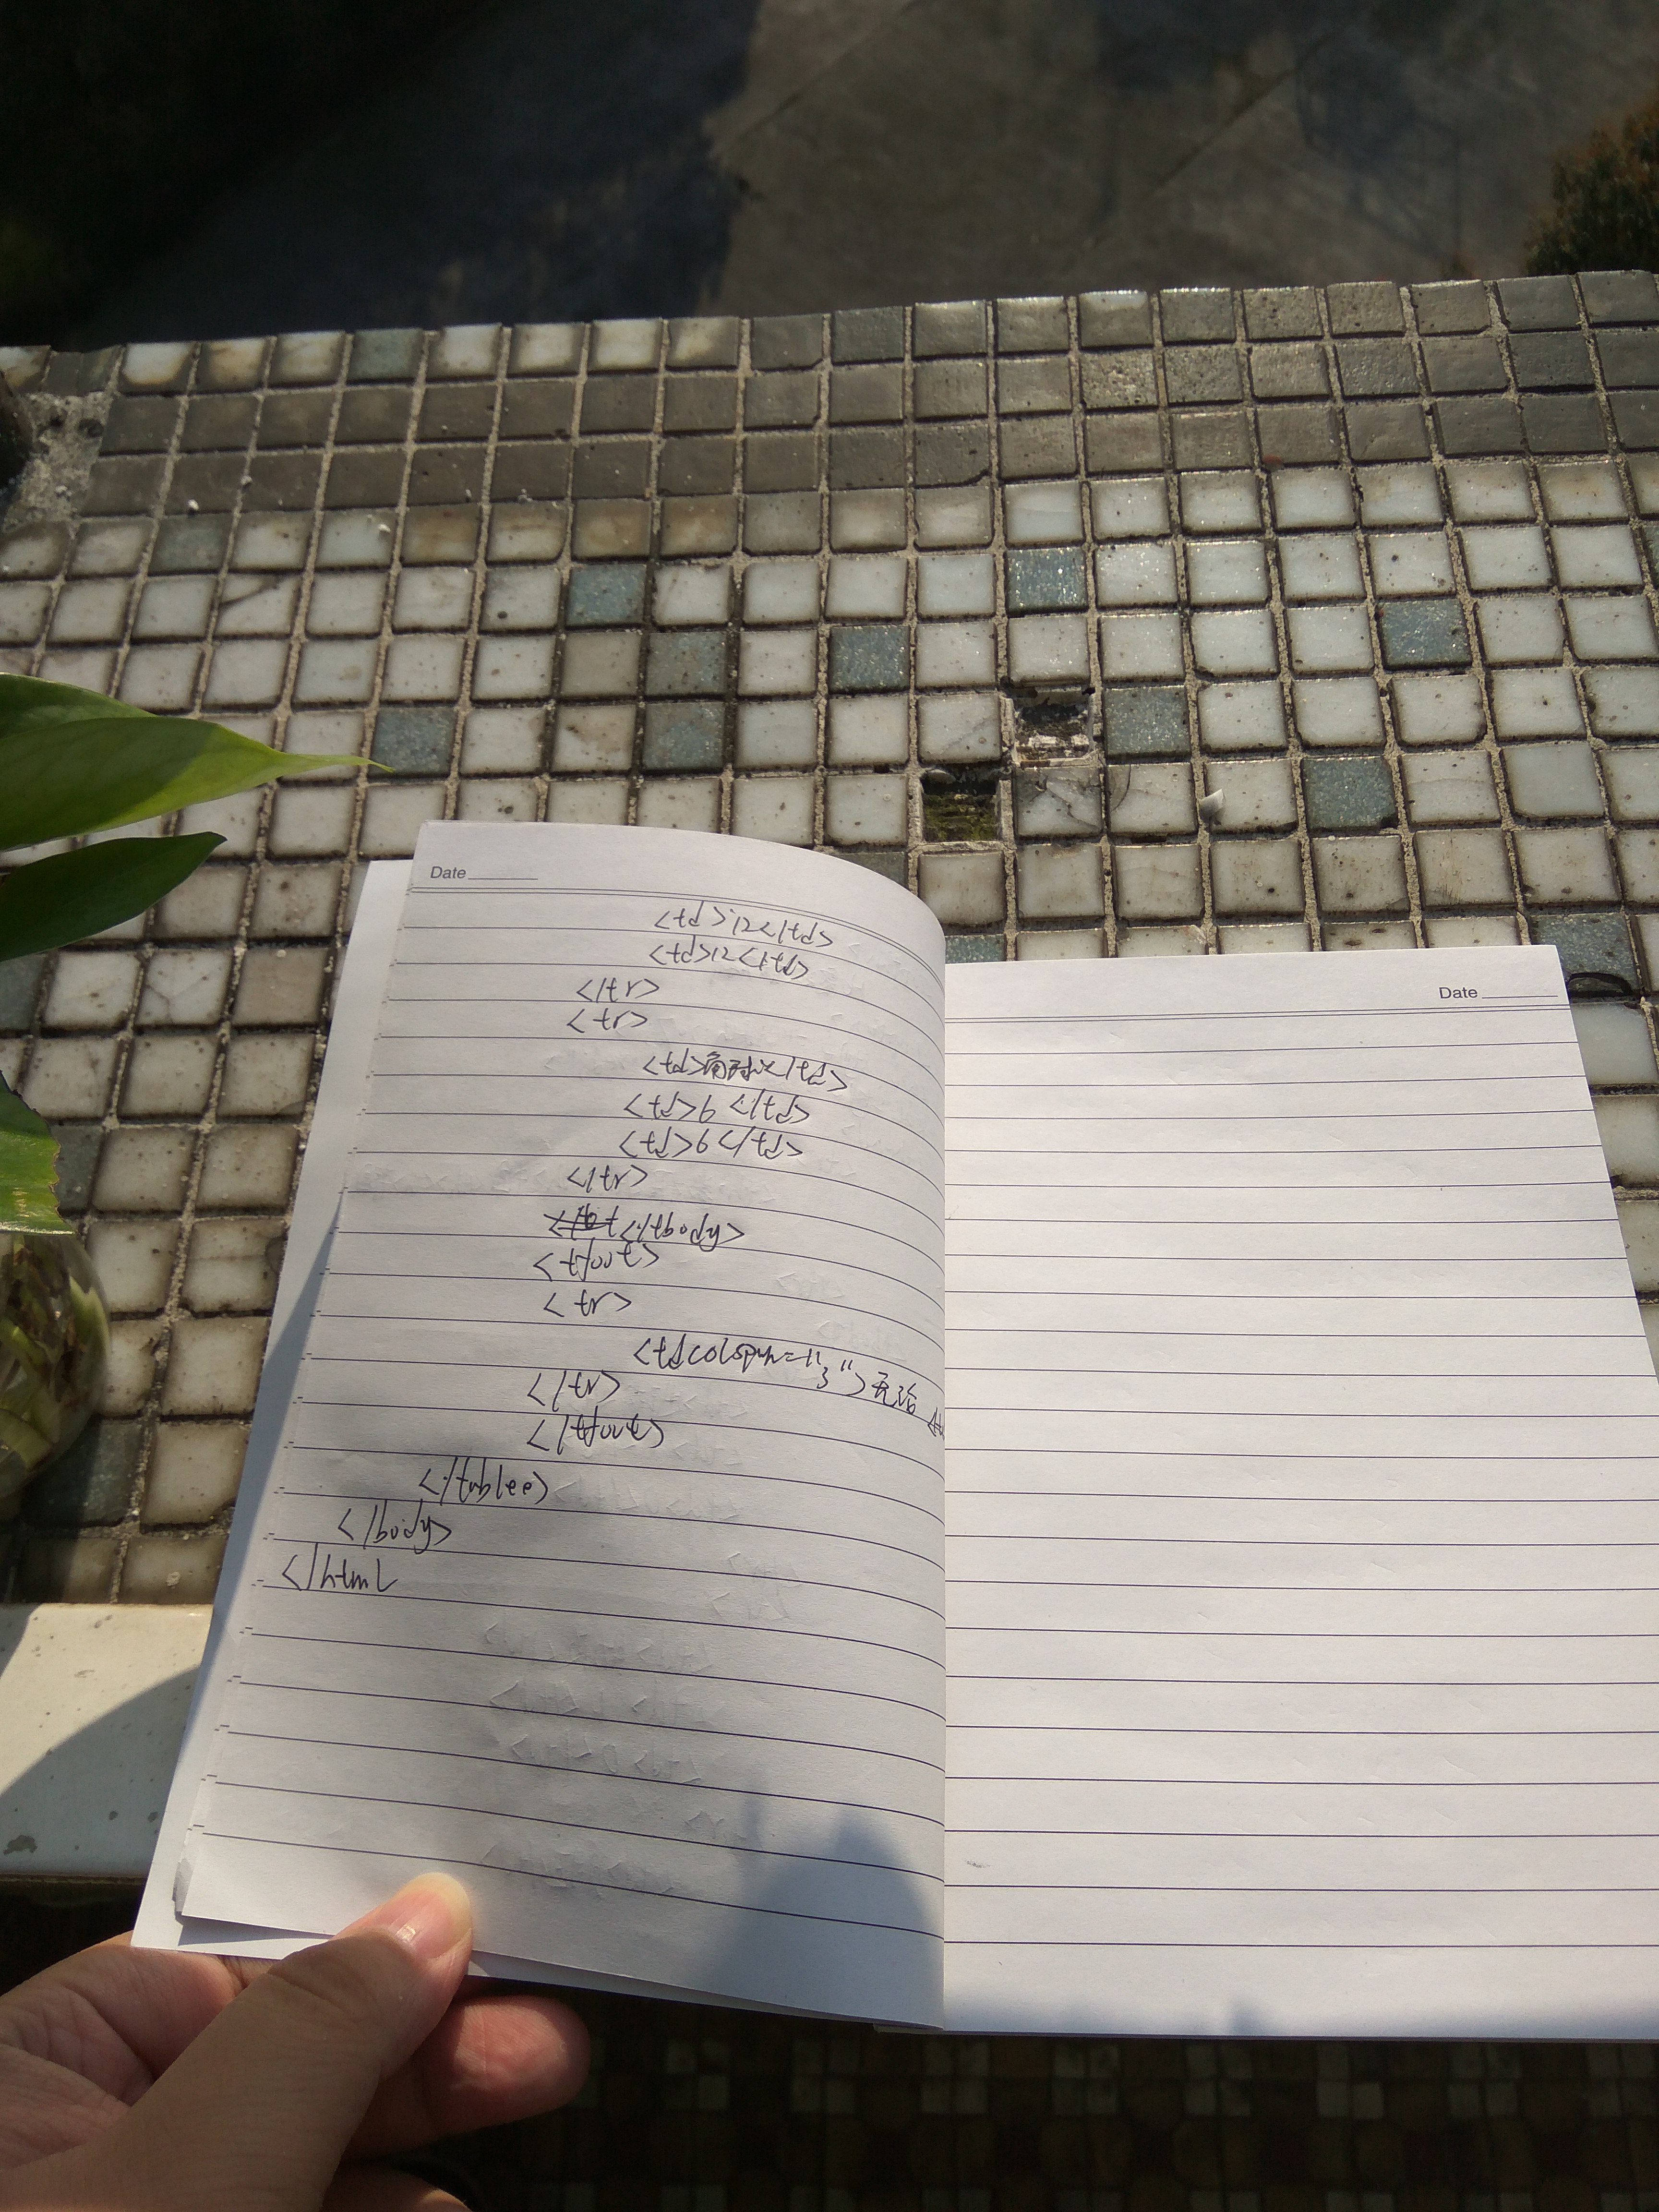 Date
<td>12</td>
<td>12</td>
</tr>
<tr>
<td></td>
<td>6 </td>
<td>6 </td>
</tr>
</tbody>
<tfoot>
<tr>
<td colspan="3">无论
</tr>
</tfoot>
</tablee>
</body>
</html
Date